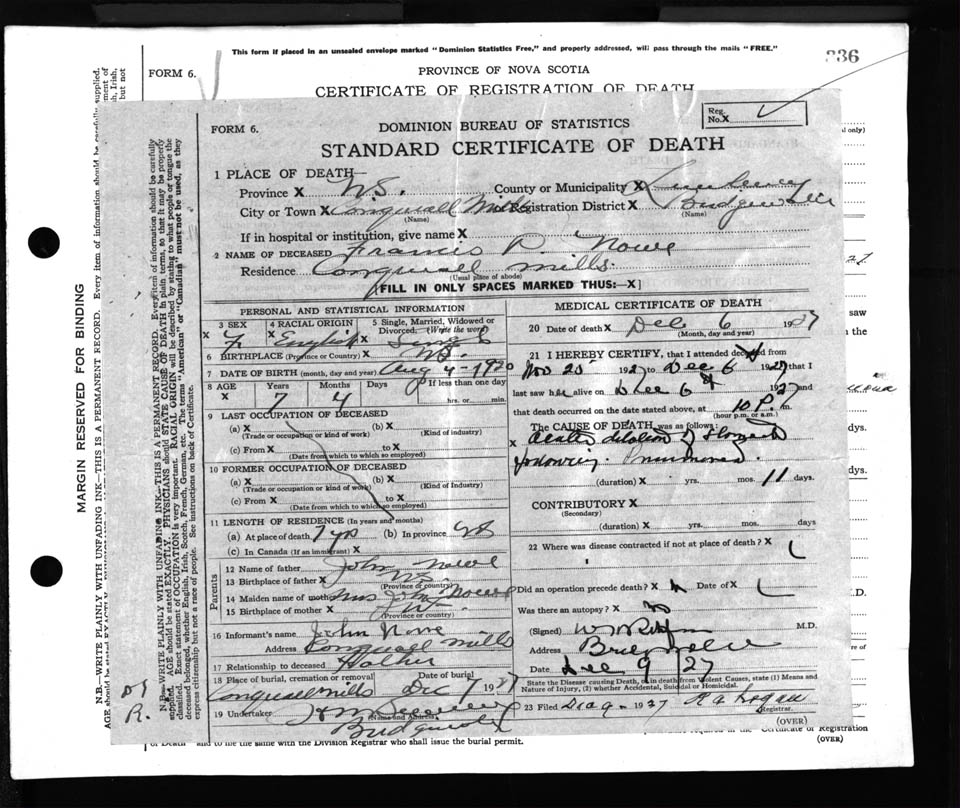 This form if placed in an unsealed envelope marked "Dominion Statistics Free," and properly addressed, will pass through the mails "FREE."
336
FORM 6.
PROVINCE OF NOVA SCOTIA
CERTIFICATE OF REGISTRATION OF DEATH
MARGIN RESERVED FOR BINDING
N.B.—WRITE PLAINLY WITH UNFADING INK—THIS IS A PERMANENT RECORD. Every item of information should be carefully supplied.
AGE should be stated EXACTLY.
N.B.—WRITE PLAINLY WITH UNFADING INK—THIS IS A PERMANENT RECORD. Every item of information should be carefully
supplied. AGE should be stated EXACTLY. PHYSICIANS should state CAUSE OF DEATH in plain terms, so that it may be properly
classified. Exact statement of OCCUPATION is very important. RACIAL ORIGIN will be described by stating to what people or tongue the
deceased belonged, whether English, Irish, Scotch, French, German, etc. The terms "American" or "Canadian" must not be used, as they
express citizenship but not a race of people. See instructions on back of Certificate.
FORM 6.
DOMINION BUREAU OF STATISTICS
Reg. No. X
STANDARD CERTIFICATE OF DEATH
1 PLACE OF DEATH—
Province X N.S. County or Municipality X Lunenburg
City or Town X Conquerall Mills Registration District X Bridgewater
(Name) (Name)
If in hospital or institution, give name X
2 NAME OF DECEASED Francis P. Nowe
Residence Conquerall Mills
(Usual place of abode)
[FILL IN ONLY SPACES MARKED THUS:—X]
PERSONAL AND STATISTICAL INFORMATION
3 SEX 4 RACIAL ORIGIN 5 Single, Married, Widowed or Divorced. (Write the word)
X F X English X Single
6 BIRTHPLACE (Province or Country) X N.S.
7 DATE OF BIRTH (month, day and year) Aug 4 - 1920
8 AGE Years Months Days If less than one day
X 7 4 hrs. or min.
9 LAST OCCUPATION OF DECEASED
(a) X (b) X
(Trade or occupation or kind of work) (Kind of industry)
(c) From X to X
(Date from which to which so employed)
10 FORMER OCCUPATION OF DECEASED
(a) X (b) X
(Trade or occupation or kind of work) (Kind of Industry)
(c) From X to X
(Date from which to which so employed)
11 LENGTH OF RESIDENCE (In years and months)
(a) At place of death 7 yrs (b) In province
(c) In Canada (If an immigrant) X
Parents
12 Name of father John Nowe
13 Birthplace of father X N.S.
(Province or country)
14 Maiden name of mother Mrs John Nowe
15 Birthplace of mother X
(Province or country)
16 Informant's name John Nowe
Address Conquerall Mills
17 Relationship to deceased Father
18 Place of burial, cremation or removal Date of burial
Conquerall Mills Dec 7 1927
19 Undertaker
(Name and Address)
Bridgewater
MEDICAL CERTIFICATE OF DEATH
20 Date of death X Dec 6 1927
(Month, day and year)
21 I HEREBY CERTIFY, that I attended deceased from
Nov 25 1927 to Dec 6 1927 that I
last saw her alive on Dec 6 1927 and
that death occurred on the date stated above, at 10 P. m.
(hour p.m. or a.m.)
The CAUSE OF DEATH was as follows:
X Acute dilation of Stomach
following Pneumonia
(duration) X yrs. mos. 11 days.
CONTRIBUTORY X
(Secondary)
(duration) X yrs. mos. days
22 Where was disease contracted if not at place of death? X
Did an operation precede death? X Date of X
Was there an autopsy? X no
(Signed) M.D.
Address Bridgewater
Date Dec 9 / 27
State the Disease causing Death, or, in death from Violent Causes, state (1) Means and
Nature of Injury, (2) whether Accidental, Suicidal or Homicidal.
23 Filed Dec 9 - 1927
Registrar.
(OVER)
of Death and to me the same with the Division Registrar who shall issue the burial permit.
Certificate of Registration
(OVER)